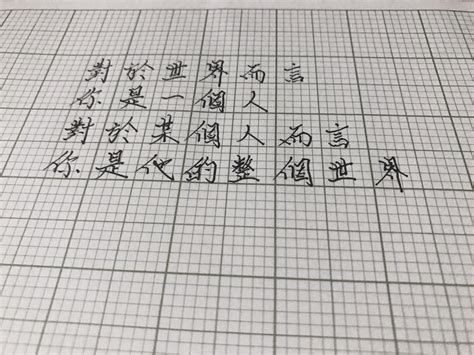 對於世界而言
你是一個人
對於某個人而言
你是他的整個世界